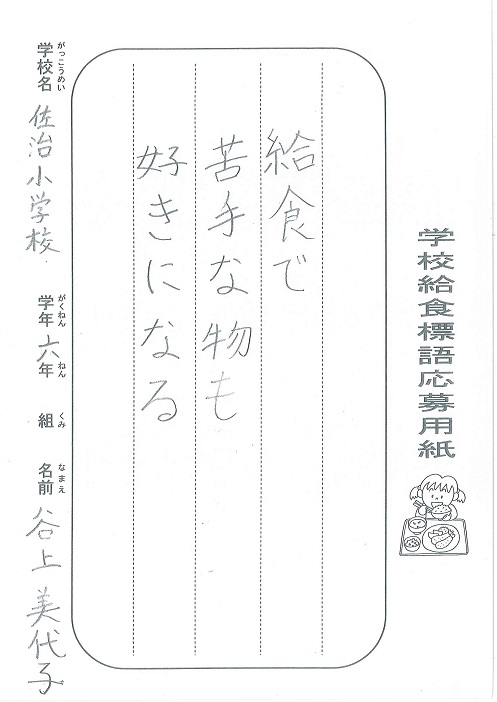 学校給食標語応募用紙
給食で
苦手な物も
好きになる
がっこうめい
学校名 佐治小学校
がくねん ねん くみ
学年 六年 組
なまえ
名前 谷上 美代子